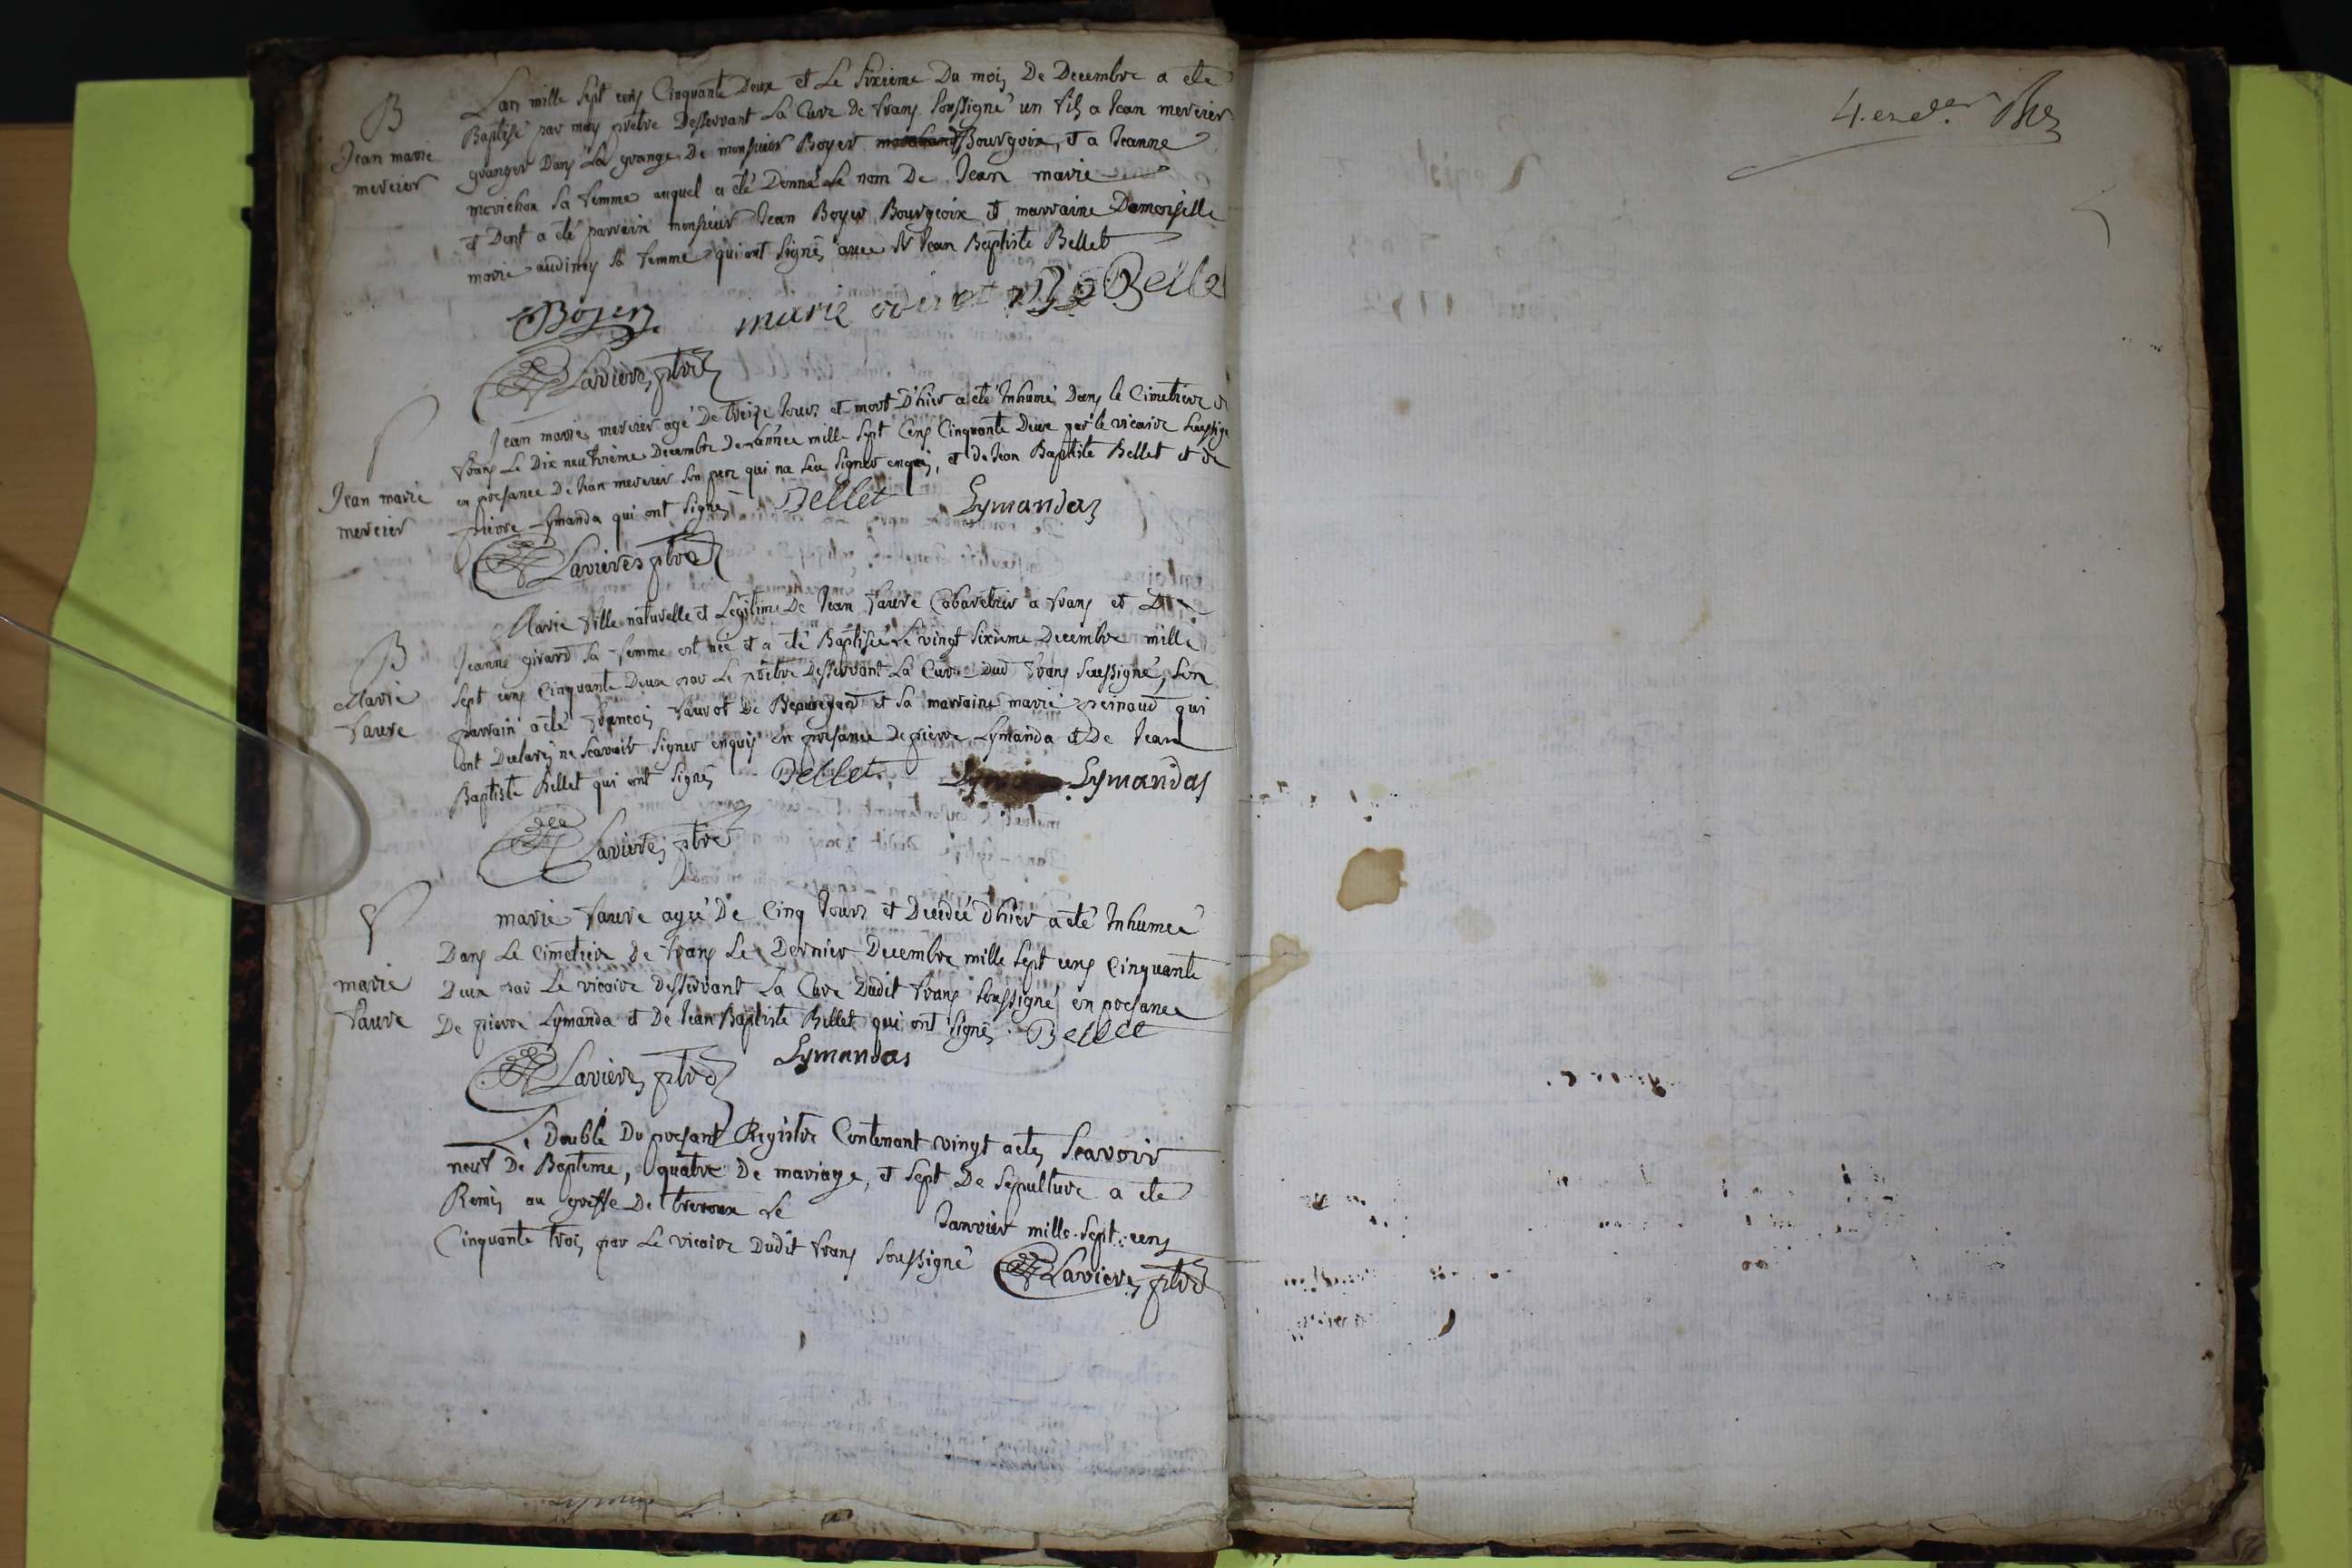 B
Jean marie
mercier
Lan mille Sept cens Cinquante Deux et Le Sixieme Du mois De Decembre a ete
Baptisé par moy prêtre Desservant La Cure de frans Soussigné un fils a Jean mercier
granger Dans La grange De monsieur Boyer Bourgoix, et a Jeanne
movichon Sa femme auquel a été Donné Le nom De Jean marie
et Dont a été parrain monsieur Jean Boyer Bourgeoix et marraine Damoiselle
marie audinoy Sa femme qui ont Signés avec Sr Jean Baptiste Bellet
Boyer marie Belle
Lavieres ptre
S
Jean marie
mercier
Jean marie mercier agé De treize Jours et mort D'hier a été Inhumé Dans le Cimetiere
frans Le Dix neufvieme Decembre De Lannée mille Sept Cens Cinquante Deux par le vicaire Soussigé
en presance De Jean mercier Son pere qui na Sceu Signer enquis, et de Jean Baptiste Bellet et de
pierre Lymanda qui ont Signés Bellet Lymandas
Lavieres ptre
B
Marie
faure
Marie fille naturelle et Legitime De Jean faure Cabaretier a frans et De
Jeanne girard Sa femme est née et a été Baptisée Le vingt Sixieme Decembre mille
Sept cens Cinquante Deux par Le prêtre Desservant La Cure Dud frans Soussigné, Son
parrain a été francois favrot De Beauregard et Sa marraine marie peinaud qui
ont Declarés ne Scavoir Signer enquis en presance De pierre Lymanda et De Jean
Baptiste Bellet qui ont Signés Bellet. Lymandas
Lavieres ptre
S
marie
faure
marie faure agée De Cinq Jours et Decedée d'hier a été Inhumée
Dans Le Cimetiere De frans Le Dernier Decembre mille Sept cens Cinquante
Deux par Le vicaire desservant La Cure Dudit frans Soussigné en presance
De pierre Lymanda et De Jean Baptiste Bellet qui ont Signés Bellet
Lymandas
Lavieres ptre
Le Double Du presant Registre Contenant vingt actes Scavoir
neuf De Bapteme, quatre De mariage, et Sept De Sepulture a ete
Remis au greffe De trevoux Le Janvier mille Sept cens
Cinquante trois par Le vicaire Dudit frans Soussigné Lavieres ptre